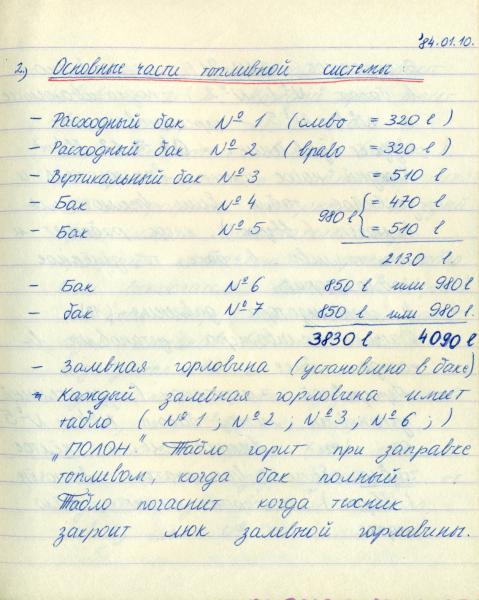 '84.01.10.
2.) Основные части топливной системы:
- Расходный бак № 1 (слево = 320 l)
- Расходный бак № 2 (враво = 320 l)
- Вертикальный бак № 3 = 510 l
- Бак № 4 = 470 l
980 l {
- Бак № 5 = 510 l
2130 l.
- Бак № 6 850 l или 980 l
- бак № 7 850 l или 980 l.
3830 l 4090 l
- Залевная горловина (установлено в баке)
- Каждый залевная горловина имеет
табло ( № 1 ; № 2 ; № 3 , № 6 ; )
„ПОЛОН." Табло горит при заправке
топливом, когда бак полный
Табло погаснит когда техник
закроит люк залевной горлавины.